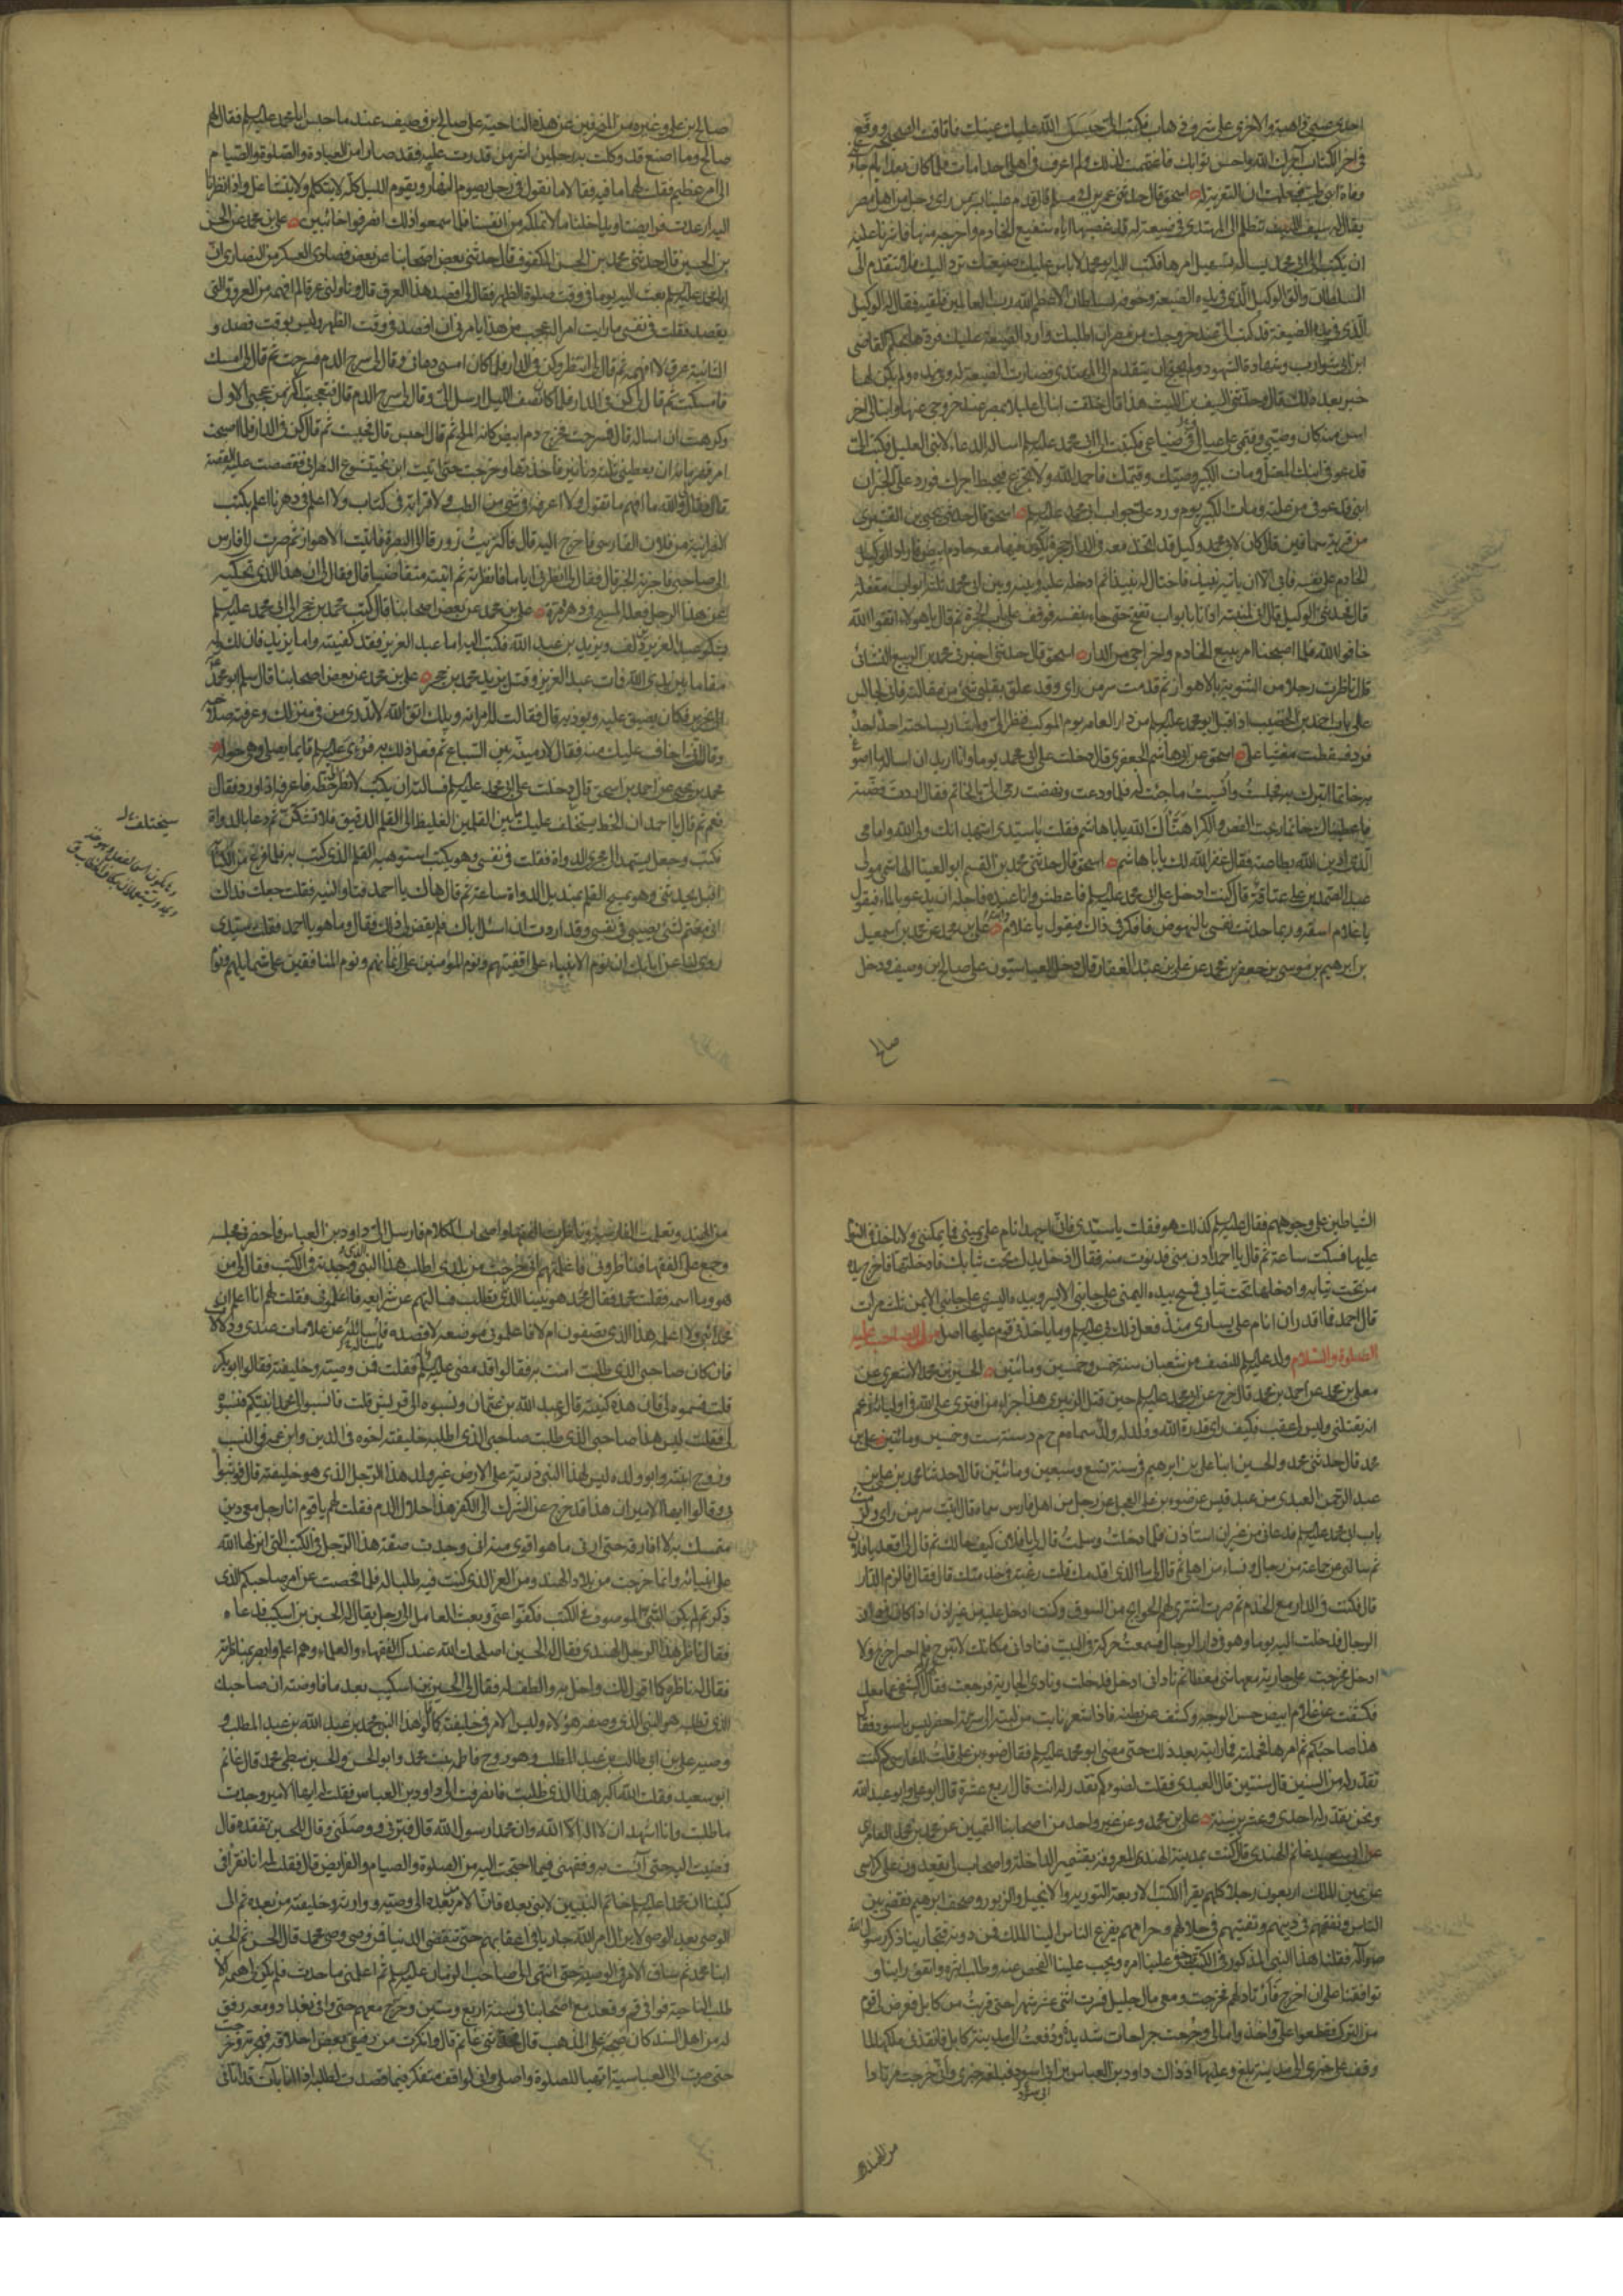 احدى عيني ذاهبة والاخرى على شرف ذهاب فكتب الي حبس الله عليك عينك فافاقت الصحيحة ووقع
في اخر الكتاب آجرك الله واحسن ثوابك فاغتممت لذلك ولم اعرف في اهلي احدا مات فلما كان بعد ايام جاءتني
وفاة ابني طيب فعلمت ان التعزية له اسحق قال حدثني عمر بن ابي مسلم قال قدم علينا بسر من راى رجل من اهل مصر
يقال له سيف بن الليث يتظلم الى المهتدي في ضيعة له قد غصبها اياه شفيع الخادم واخرجه منها فاشرنا عليه
ان يكتب الى ابي محمد يسأله تسهيل امرها فكتب اليه ابو محمد لا باس عليك ضيعتك ترد اليك فلا تتقدم الى
السلطان والق الوكيل الذي في يده الضيعة وخوفه بالسلطان الاعظم الله رب العالمين فلقيه فقال له الوكيل
الذي في يده الضيعة قد كتب الي عند خروجك من مصر ان اطلبك وارد الضيعة عليك فردها عليه بحكم القاضي
ابن ابي شوارب وشهادة الشهود ولم يحتج ان يتقدم الى المهتدي فصارت الضيعة له وفي يده ولم يكن لها
خبر بعد ذلك قال وحدثني سيف بن الليث هذا قال خلفت ابنا لي عليلا بمصر عند خروجي عنها وابنا لي اخر
اسن منه كان وصيي وقيمي على عيالي وفي ضياعي فكتبت الى ابي محمد عليه السلم اساله الدعاء لابني العليل فكتب الي
قد عوفي ابنك المعتل ومات الكبير وصيك وقيمك فاحمد الله ولا تجزع فيحبط اجرك فورد علي الخبر ان
ابني قد عوفي من علته ومات الكبير يوم ورد علي جواب ابي محمد عليه السلم اسحق قال حدثني يحيى بن القشيري
من قرية سماقين قال كان لابي محمد وكيل قد اتخذ معه في الدار حجرة يكون فيها معه خادم ابيض فاراد الوكيل
الخادم على نفسه فابى الا ان ياتيه بنبيذ فاحتال له بنبيذ ثم ادخله عليه وبينه وبين ابي محمد ثلثة ابواب مغلقة
قال فحدثني الوكيل قال اني لمنتبه اذ انا بابواب تفتح حتى جاء بنفسه فوقف على باب الحجرة ثم قال يا هولاء اتقوا الله
خافوا الله فلما اصبحنا امر ببيع الخادم واخراجي من الدار اسحق قال حدثني اخبرني محمد بن الربيع الشائي
قال ناظرت رجلا من الثنوية بالاهواز ثم قدمت سر من راى وقد علق بقلبي شئ من مقالته فاني لجالس
على باب احمد بن الخضيب اذ اقبل ابو محمد عليه السلم من دار العامة يوم الموكب فنظر الي واشار بسباحته احد احد
فرد فسقطت مغشيا علي اسحق عن ابي هاشم الجعفري قال دخلت على ابي محمد يوما وانا اريد ان اساله ما اصوغ
به خاتما اتبرك به فجلست وانسيت ما جئت له فلما ودعت ونهضت رمى الي بالخاتم فقال اردت فضة
فاعطيناك خاتما ربحت الفص والكرا هناك الله يا با هاشم فقلت يا سيدي اشهد انك ولي الله وامامي
الذي ادين الله بطاعته فقال غفر الله لك يا با هاشم اسحق قال حدثني محمد بن القسم ابو العينا الهاشمي مولى
عبد الصمد بن علي عتاقة قال كنت ادخل على ابي محمد عليه السلم فاعطش وانا عنده فاجله ان ادعو بالماء فيقول
يا غلام اسقه وربما حدثت نفسي بالنهوض فافكر في ذلك فيقول يا غلام دابته علي بن محمد عن محمد بن اسمعيل
بن ابرهيم بن موسى بن جعفر بن محمد عن علي بن عبد الغفار قال دخل العباسيون على صالح بن وصيف ودخل
صالح
صالح بن علي وغيره من المنحرفين عن هذه الناحية على صالح بن وصيف عند ما حبس ابا محمد عليه السلم فقال لهم
صالح وما اصنع قد وكلت به رجلين اشر من قدرت عليه فقد صارا من العبادة والصلوة والصيام
الى امر عظيم فقلت لهما ما فيه فقالا ما نقول في رجل يصوم النهار ويقوم الليل كله لا يتكلم ولا يتشاغل واذا نظرنا
اليه ارعدت فرايصنا ويداخلنا ما لا نملكه من انفسنا فلما سمعوا ذلك انصرفوا خائبين علي بن محمد عن الحسن
بن الحسين قال حدثني محمد بن الحسن المكفوف قال حدثني بعض اصحابنا عن بعض فصادي العسكر من النصارى ان
ابا محمد عليه السلم بعث اليه يوما في وقت صلوة الظهر فقال لي افصد هذا العرق قال وناولني عرقا لم افهمه من العروق التي
يفصد فقلت في نفسي ما رايت امرا اعجب من هذا يامرني ان افصد في وقت الظهر وليس بوقت فصد و
الثانية عرق لا افهمه ثم قال لي انتظر وكن في الدار فلما كان امسى دعاني وقال لي سرح الدم فسرحت ثم قال لي امسك
فامسكت ثم قال لي كن في الدار فلما كان نصف الليل ارسل الي وقال لي سرح الدم قال فتعجبت اكثر من عجبي الاول
وكرهت ان اساله قال فسرحت فخرج دم ابيض كانه الملح ثم قال لي احبس قال فحبست ثم قال كن في الدار فلما اصبحت
امر قهرمانه ان يعطيني ثلثة دنانير فاخذتها وخرجت حتى اتيت ابن بختيشوع النصراني فقصصت عليه القصة
قال فقال لي والله ما افهم ما تقول ولا اعرفه في شئ من الطب ولا قراته في كتاب ولا اعلم في دهرنا اعلم بكتب
النصرانية من فلان الفارسي فاخرج اليه قال فاكتريت زورقا الى البصرة فاتيت الاهواز ثم صرت الى فارس
الى صاحبي فاخبرته الخبر قال فقال لي انظرني اياما فانظرته ثم اتيته متقاضيا قال فقال لي ان هذا الذي تحكيه
عن هذا الرجل فعله المسيح في دهره مرة علي بن محمد عن بعض اصحابنا قال كتب محمد بن حجر الى ابي محمد عليه السلم
يشكو عبد العزيز بن دلف ويزيد بن عبد الله فكتب اليه اما عبد العزيز فقد كفيته واما يزيد فان لك وله
مقاما بين يدي الله فمات عبد العزيز وقتل يزيد محمد بن حجر علي بن محمد عن بعض اصحابنا قال سلم ابو محمد
الى نحرير فكان يضيق عليه ويوذيه قال فقالت له امراته ويلك اتق الله لا تدري من في منزلك وعرفته صلاحه
وقالت اني اخاف عليك منه فقال لارمينه بين السباع ثم فعل ذلك به فرؤي عليه السلم قايما يصلي وهي حوله
محمد بن يحيى عن احمد بن اسحق قال دخلت على ابي محمد عليه السلم فسالته ان يكتب لانظر الى خطه فاعرفه اذا ورد فقال
نعم ثم قال يا احمد ان الخط سيختلف عليك ما بين القلمين الغليظ الى القلم الدقيق فلا تشكن ثم دعا بالدواة
فكتب وجعل يستمد الى مجرى الدواة فقلت في نفسي وهو يكتب استوهبه القلم الذي كتب به فلما فرغ من الكتابة
اقبل يحدثني وهو يمسح القلم بمنديل الدواة ساعة ثم قال هاك يا احمد فناولنيه فقلت جعلت فداك
اني مغتم لشئ يصيبني في نفسي وقد اردت ان اسئل اباك فلم يقض لي ذلك فقال وما هو يا احمد فقلت سيدي
روي لنا عن ابايك ان نوم الانبياء على اقفيتهم ونوم المؤمنين على ايمانهم ونوم المنافقين على شمايلهم ونوم
سيختلف
الشياطين على وجوههم فقال عليه السلم كذلك هو فقلت يا سيدي فاني اجهد ان انام على يميني فما يمكنني ولا ياخذني النوم
عليها فسكت ساعة ثم قال يا احمد ادن مني فدنوت منه فقال ادخل يدك تحت ثيابك فادخلتها فاخرج يده
من تحت ثيابه وادخلها تحت ثيابي فمسح بيده اليمنى على جانبي الايسر وبيده اليسرى على جانبي الايمن ثلث مرات
قال احمد فما اقدر ان انام على يساري منذ فعل ذلك بي عليه السلم وما ياخذني نوم عليها اصلا مولد الصاحب عليه
الصلوة والسلام ولد عليه السلم للنصف من شعبان سنة خمس وخمسين ومائتين الحسين بن محمد الاشعري عن
معلى بن محمد عن احمد بن محمد قال خرج عن ابي محمد عليه السلم حين قتل الزبيري هذا جزاء من افترى على الله في اوليائه زعم
انه يقتلني وليس لي عقب فكيف راى قدرة الله وولد له ولد سماه م ح م د سنة ست وخمسين ومائتين علي بن
محمد قال حدثني محمد والحسن ابنا علي بن ابرهيم في سنة تسع وسبعين ومائتين قالا حدثنا محمد بن علي بن
عبد الرحمن العبدي من عبد قيس عن ضوء بن علي العجلي عن رجل من اهل فارس سماه قال اتيت سر من راى ولزمت
باب ابي محمد عليه السلم فدعاني من غير ان استاذن فلما دخلت وسلمت قال لي يا فلان كيف حالك ثم قال لي اقعد يا فلان
ثم سالني عن جماعة من رجال ونساء من اهلي ثم قال لي ما الذي اقدمك قلت رغبة في خدمتك قال فقال فالزم الدار
قال فكنت في الدار مع الخدم ثم صرت اشتري لهم الحوايج من السوق وكنت ادخل عليه من غير اذن اذا كان في دار
الرجال فدخلت اليه يوما وهو في دار الرجال فسمعت حركة في البيت فناداني مكانك لا تبرح فلم اجسر اخرج ولا
ادخل فخرجت علي جارية معها شئ مغطى ثم ناداني ادخل فدخلت ونادى الجارية فرجعت فقال لها اكشفي عما معك
فكشفت عن غلام ابيض حسن الوجه وكشفت عن بطنه فاذا شعر نابت من لبته الى سرته اخضر ليس باسود فقال
هذا صاحبكم ثم امرها فحملته فما رايته بعد ذلك حتى مضى ابو محمد عليه السلم فقال ضوء بن علي قلت للفارسي كم كنت
تقدر له من السنين قال سنتين قال العبدي فقلت لضوء كم تقدر له انت قال اربع عشرة قال ابو علي وابو عبد الله
ونحن نقدر له احدى وعشرين سنة علي بن محمد وعن غير واحد من اصحابنا القميين عن محمد بن محمد العامري
عن ابي سعيد غانم الهندي قال كنت بمدينة الهند المعروفة بقشمير الداخلة واصحاب لي يقعدون على كراسي
عن يمين الملك اربعون رجلا كلهم يقرا الكتب الاربعة التورية والانجيل والزبور وصحف ابرهيم نقضي بين
الناس ونفقههم في دينهم ونفتيهم في حلالهم وحرامهم يفزع الناس الينا الملك فمن دونه فتجارينا ذكر رسول الله
صلى الله عليه وآله فقلنا هذا النبي المذكور في الكتب قد خفي علينا امره ويجب علينا الفحص عنه وطلب اثره واتفق راينا و
توافقنا على ان اخرج فارتاد لهم فخرجت ومعي مال جليل فسرت اثنى عشر شهرا حتى قربت من كابل فعرض لي قوم
من الترك فقطعوا علي واخذوا مالي وجرحت جراحات شديدة ودفعت الى مدينة كابل فانفذني ملكها لما
وقف على خبري الى مدينة بلخ وعليها اذ ذاك داود بن العباس بن ابي اسود فبلغه خبري واني خرجت مرتادا
من الهند
من الهند وتعلمت الفارسية وناظرت الفقهاء واصحاب الكلام فارسل الي داود بن العباس فاحضرني مجلسه
وجمع علي الفقهاء فناظروني فاعلمتهم اني خرجت من بلدي اطلب هذا النبي الذي وجدته في الكتب فقال لي من
هو وما اسمه فقلت محمد فقال محمد هو نبينا الذي تطلب فسالتهم عن شرايعه فاعلموني فقلت لهم انا اعلم ان
محمدا نبي ولا اعلمه هذا الذي تصفون ام لا فاعلموني موضعه لاقصده فاسائله عن علامات عندي ودلالات
فان كان صاحبي الذي طلبت امنت به فقالوا قد مضى عليه السلم فقلت فمن وصيه وخليفته فقالوا ابو بكر
قلت فسموه لي فان هذه كنيته قالوا عبد الله بن عثمان ونسبوه الى قريش قلت فانسبوا لي محمدا نبيكم فنسبوه
لي فقلت ليس هذا صاحبي الذي طلبت صاحبي الذي اطلبه خليفته اخوه في الدين وابن عمه في النسب
وزوج ابنته وابو ولده ليس لهذا النبي ذرية على الارض غير ولد هذا الرجل الذي هو خليفته قال فوثبوا
بي وقالوا ايها الامير ان هذا قد خرج عن الشرك الى الكفر هذا حلال الدم فقلت لهم يا قوم انا رجل معي دين
متمسك به لا افارقه حتى ارى ما هو اقوى منه اني وجدت صفة هذا الرجل في الكتب التي انزلها الله
على انبيائه وانما خرجت من بلاد الهند ومن العز الذي كنت فيه طلبا له فلما فحصت عن امر صاحبكم الذي
ذكرتم لم يكن النبي الموصوف في الكتب فكفوا عني وبعث العامل الى رجل يقال له الحسين بن اسكيب فدعاه
فقال له ناظر هذا الرجل الهندي فقال له الحسين اصلحك الله عندك الفقهاء والعلماء وهم اعلم وابصر بمناظرته
فقال له ناظره كما اقول لك واخل به والطف له فقال لي الحسين بن اسكيب بعد ما فاوضته ان صاحبك
الذي تطلبه هو النبي الذي وصفه هؤلاء وليس الامر في خليفته كما قالوا هذا النبي محمد بن عبد الله بن عبد المطلب و
وصيه علي بن ابي طالب بن عبد المطلب وهو زوج فاطمة بنت محمد وابو الحسن والحسين سبطي محمد قال غانم
ابو سعيد فقلت الله اكبر هذا الذي طلبت فانصرفت الى داود بن العباس فقلت له ايها الامير وجدت
ما طلبت وانا اشهد ان لا اله الا الله وان محمدا رسول الله قال فبرني ووصلني وقال للحسين تفقده قال
فمضيت اليه حتى آنست به وفقهني فيما احتجت اليه من الصلوة والصيام والفرايض قال فقلت له انا نقرا في
كتبنا ان محمدا عليه السلم خاتم النبيين لا نبي بعده فان الامر من بعده الى وصيه ووارثه وخليفته من بعده ثم الى
الوصي بعد الوصي لا يزال امر الله جاريا في اعقابهم حتى تنقضي الدنيا فمن وصي وصي محمد قال الحسن ثم الحسين
ابنا محمد ثم ساق الامر في الوصية حتى انتهى الى صاحب الزمان عليه السلم ثم اعلمني ما حدث فلم يكن لي همة الا
طلب الناحية فوافى قم وقعد مع اصحابنا في سنة اربع وستين وخرج معهم حتى وافى بغداد ومعه رفيق
له من اهل السند كان صحبه على المذهب قال فحدثني غانم قال وانكرت من رفيقي بعض اخلاقه فهجرته وخرجت
حتى صرت الى العباسية اتهيا للصلوة واصلي واني لواقف متفكر فيما قصدت لطلبه اذا انا بآت قد اتاني